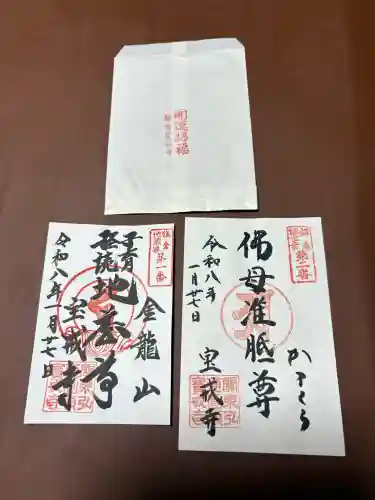 開運招福
鎌倉
地蔵尊
第一番
金龍山
子育
経読
地蔵尊
宝戒寺
令和八年一月廿七日
鎌倉
観世音
第二番
かまくら
佛母准胝尊
宝戒寺
令和八年
一月廿七日